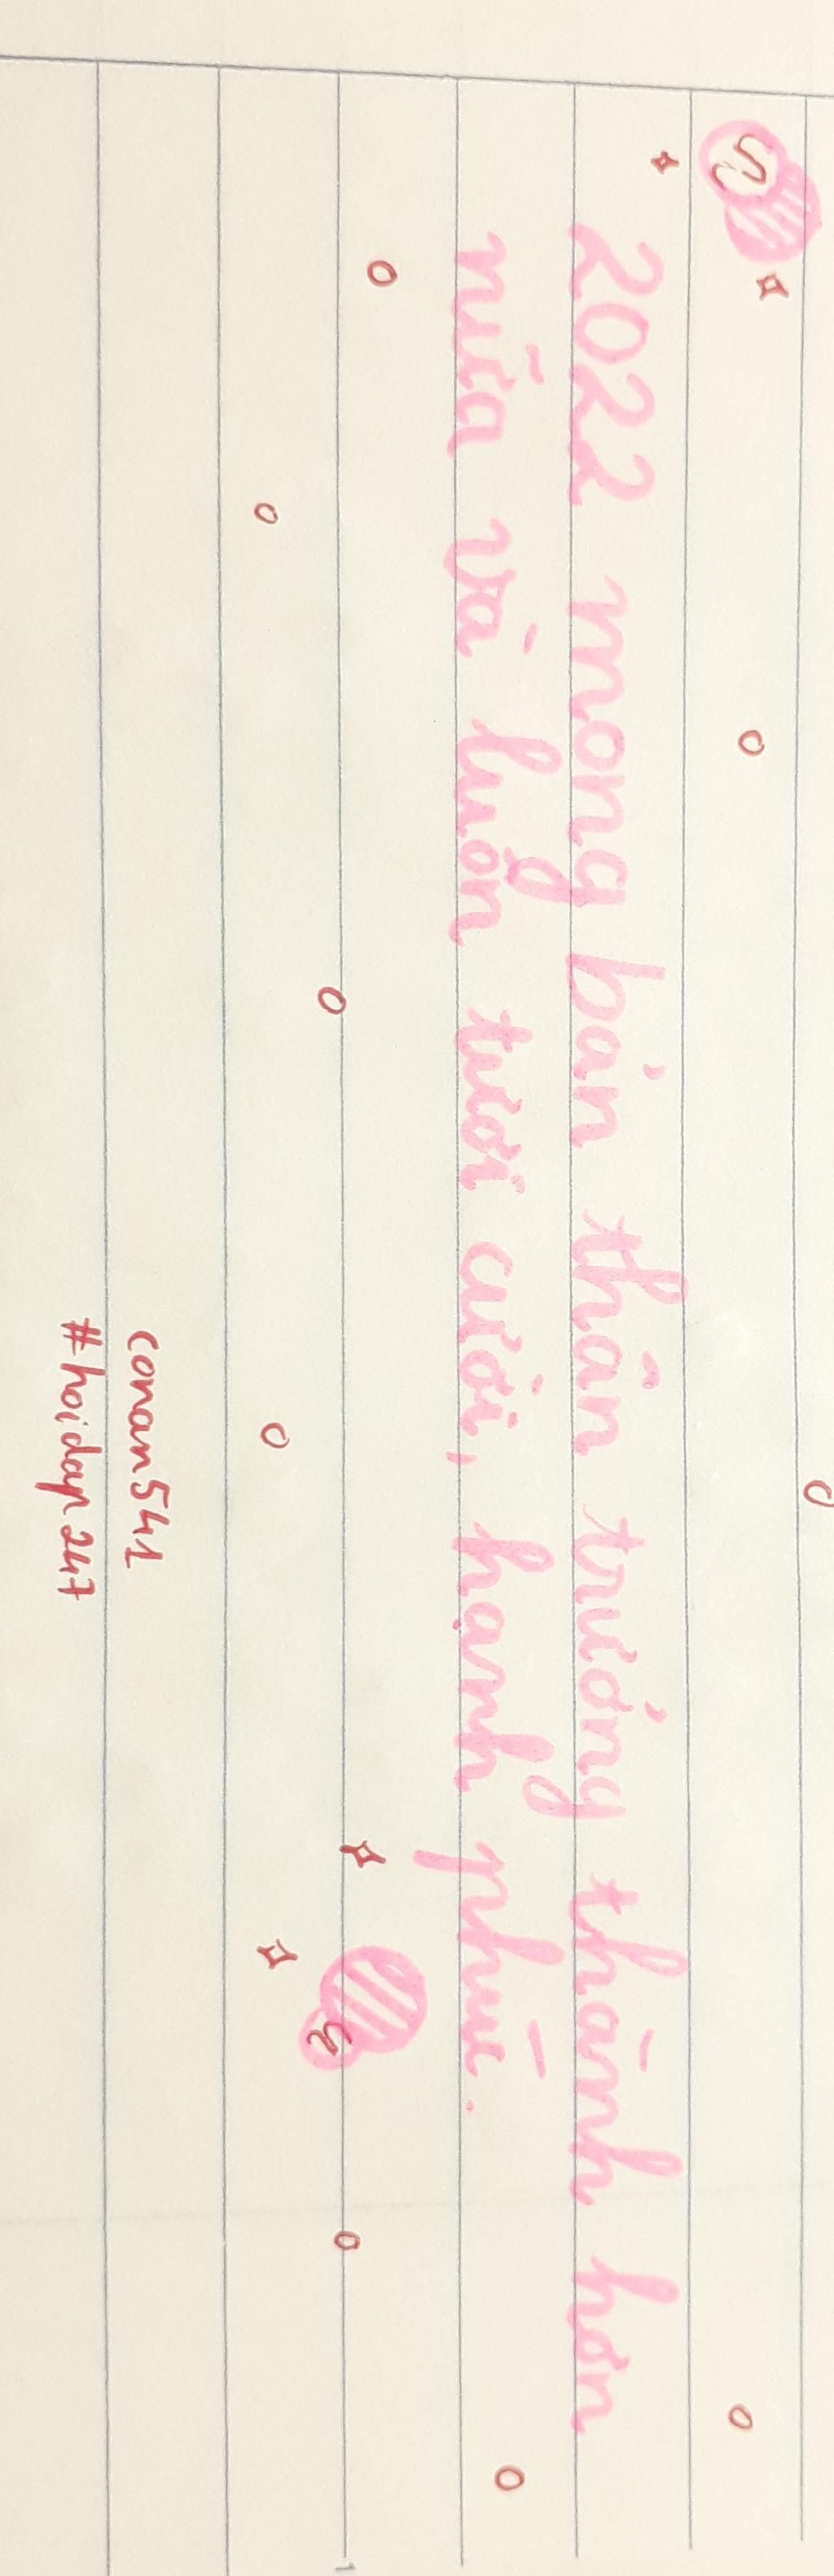 2022 mong bản thân trưởng thành hơn
nữa và luôn tươi cười, hạnh phúc.
conan541
#hoidap247